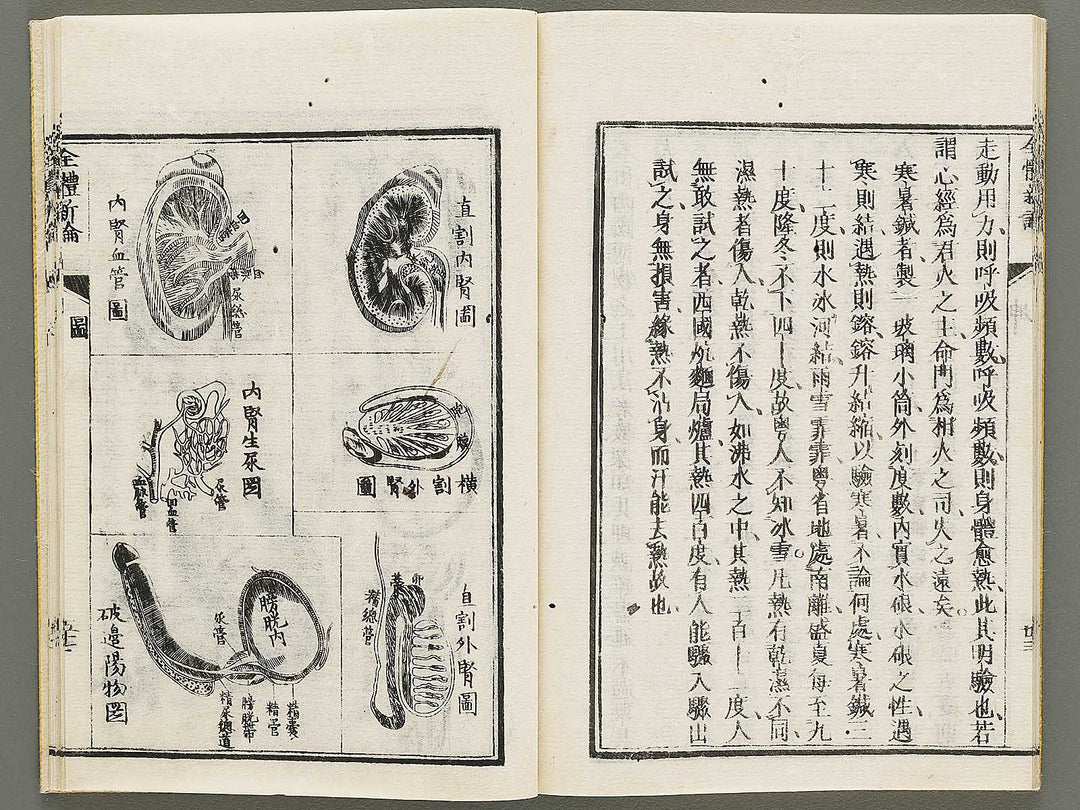 全體新論
走動用力則呼吸頻數呼吸頻數則身體愈熱此其明驗也若
謂心經爲君火之主命門爲相火之司失之遠矣。
寒暑鍼者製一玻璃小筒外刻度數內實水硍水硍之性遇
寒則結遇熱則鎔鎔升結縮以驗寒暑不論何處寒暑鍼三
十二度則水冰河結雨雪霏霏粵省地處南離盛夏每至九
十度隆冬不下四十度故粵人不知冰雪。凡熱有乾濕不同
濕熱者傷人乾熱不傷人如沸水之中其熱二百一十二度人
無敢試之者西國炕麵局爐其熱四百度有人能驟入驟出
試之身無損害緣熱不沾身而汗能去熱故也
廿三
全體新論
圖
直割內腎圖
內腎血管圖
尿總管
橫割外腎圖
內腎生尿圖
尿管
血管
直割外腎圖
卵
精總管
膀胱內
尿管
精囊
精管
膀胱蒂
精尿總道
破邊陽物圖